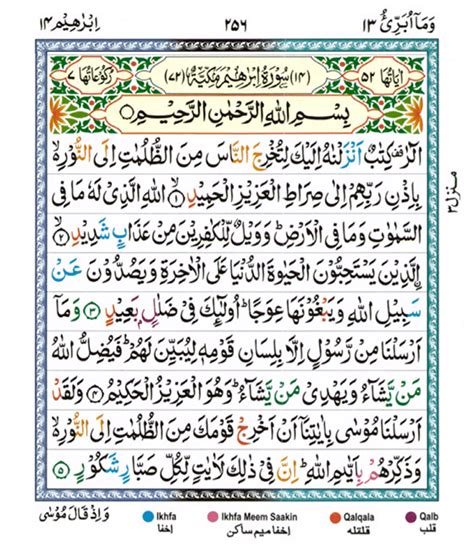 وَمَآ اُبَرِّئُ ١٣ ٢٥٦ اِبْرٰهِيْم ١٤
اٰيَاتُهَا ٥٢ (١٤) سُوْرَةُ اِبْرٰهِيْمَ مَكِّيَّةٌ (٧٢) رُكُوْعَاتُهَا ٧
بِسْمِ اللّٰهِ الرَّحْمٰنِ الرَّحِيْمِ
الٓرٰ كِتٰبٌ اَنْزَلْنٰهُ اِلَيْكَ لِتُخْرِجَ النَّاسَ مِنَ الظُّلُمٰتِ اِلَى النُّوْرِ
بِاِذْنِ رَبِّهِمْ اِلٰى صِرَاطِ الْعَزِيْزِ الْحَمِيْدِ ١ اللّٰهِ الَّذِيْ لَهٗ مَا فِي
السَّمٰوٰتِ وَمَا فِي الْاَرْضِ وَوَيْلٌ لِّلْكٰفِرِيْنَ مِنْ عَذَابٍ شَدِيْدِ ٢
الَّذِيْنَ يَسْتَحِبُّوْنَ الْحَيٰوةَ الدُّنْيَا عَلَى الْاٰخِرَةِ وَيَصُدُّوْنَ عَنْ
سَبِيْلِ اللّٰهِ وَيَبْغُوْنَهَا عِوَجًا اُولٰٓئِكَ فِيْ ضَلٰلٍ بَعِيْدٍ ٣ وَمَآ
اَرْسَلْنَا مِنْ رَّسُوْلٍ اِلَّا بِلِسَانِ قَوْمِهٖ لِيُبَيِّنَ لَهُمْ فَيُضِلُّ اللّٰهُ
مَنْ يَّشَآءُ وَيَهْدِيْ مَنْ يَّشَآءُ وَهُوَ الْعَزِيْزُ الْحَكِيْمُ ٤ وَلَقَدْ
اَرْسَلْنَا مُوْسٰى بِاٰيٰتِنَآ اَنْ اَخْرِجْ قَوْمَكَ مِنَ الظُّلُمٰتِ اِلَى النُّوْرِ
وَذَكِّرْهُمْ بِاَيّٰىمِ اللّٰهِ اِنَّ فِيْ ذٰلِكَ لَاٰيٰتٍ لِّكُلِّ صَبَّارٍ شَكُوْرٍ ٥
منزل ٣
وَاِذْ قَالَ مُوْسٰى
Ikhfa Ikhfa Meem Saakin Qalqala Qalb
اخفا اخفا میم ساکن قلقله قلب